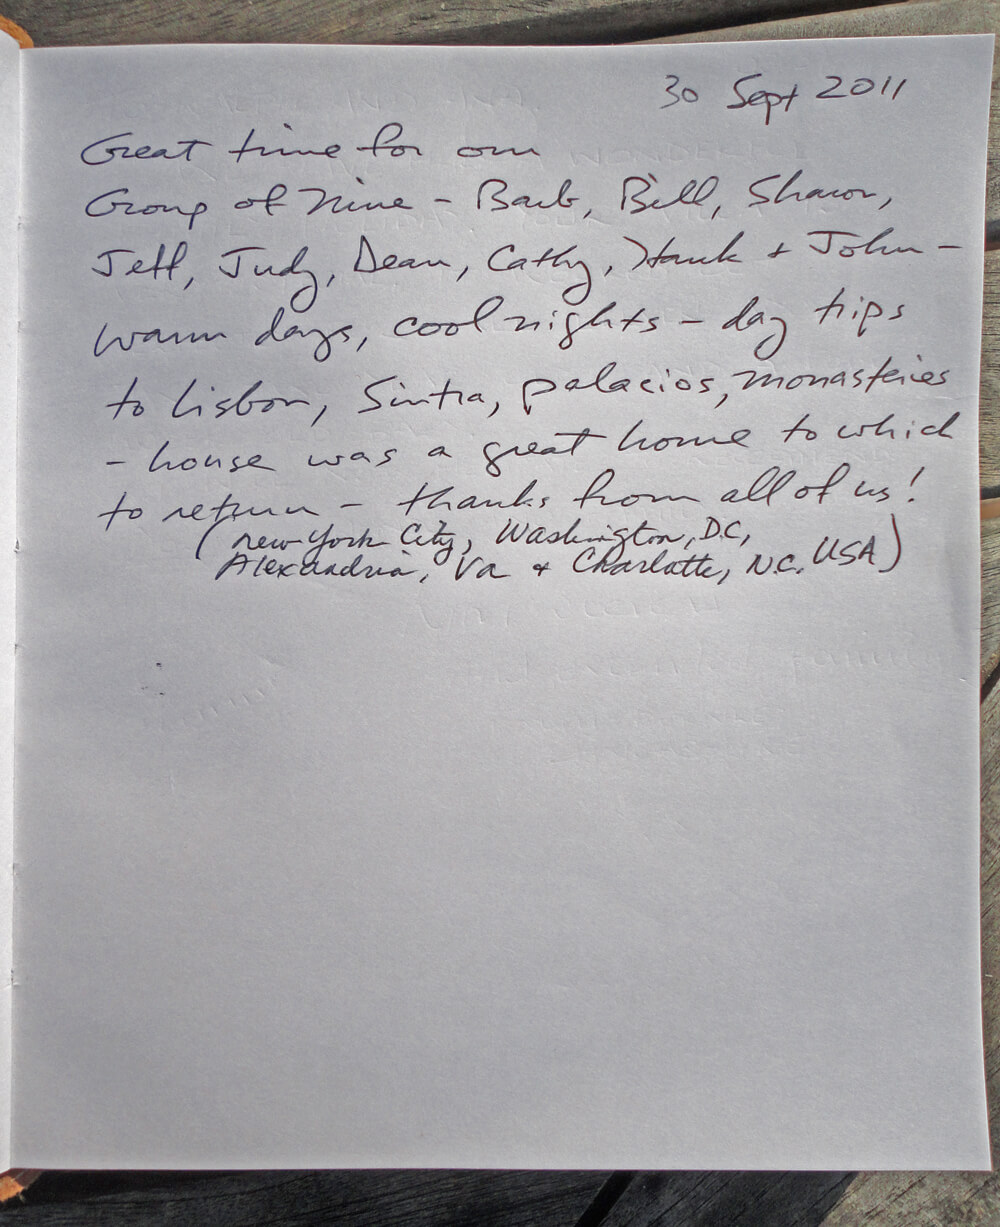 30 Sept 2011
Great time for our
Group of Nine - Barb, Bill, Sharon,
Jeff, Judy, Dean, Cathy, Hank + John -
warm days, cool nights - day trips
to Lisbon, Sintra, palacios, monasteries
- house was a great home to which
to return - thanks from all of us!
(New York City, Washington, D.C,
Alexandria, Va + Charlotte, N.C. USA)